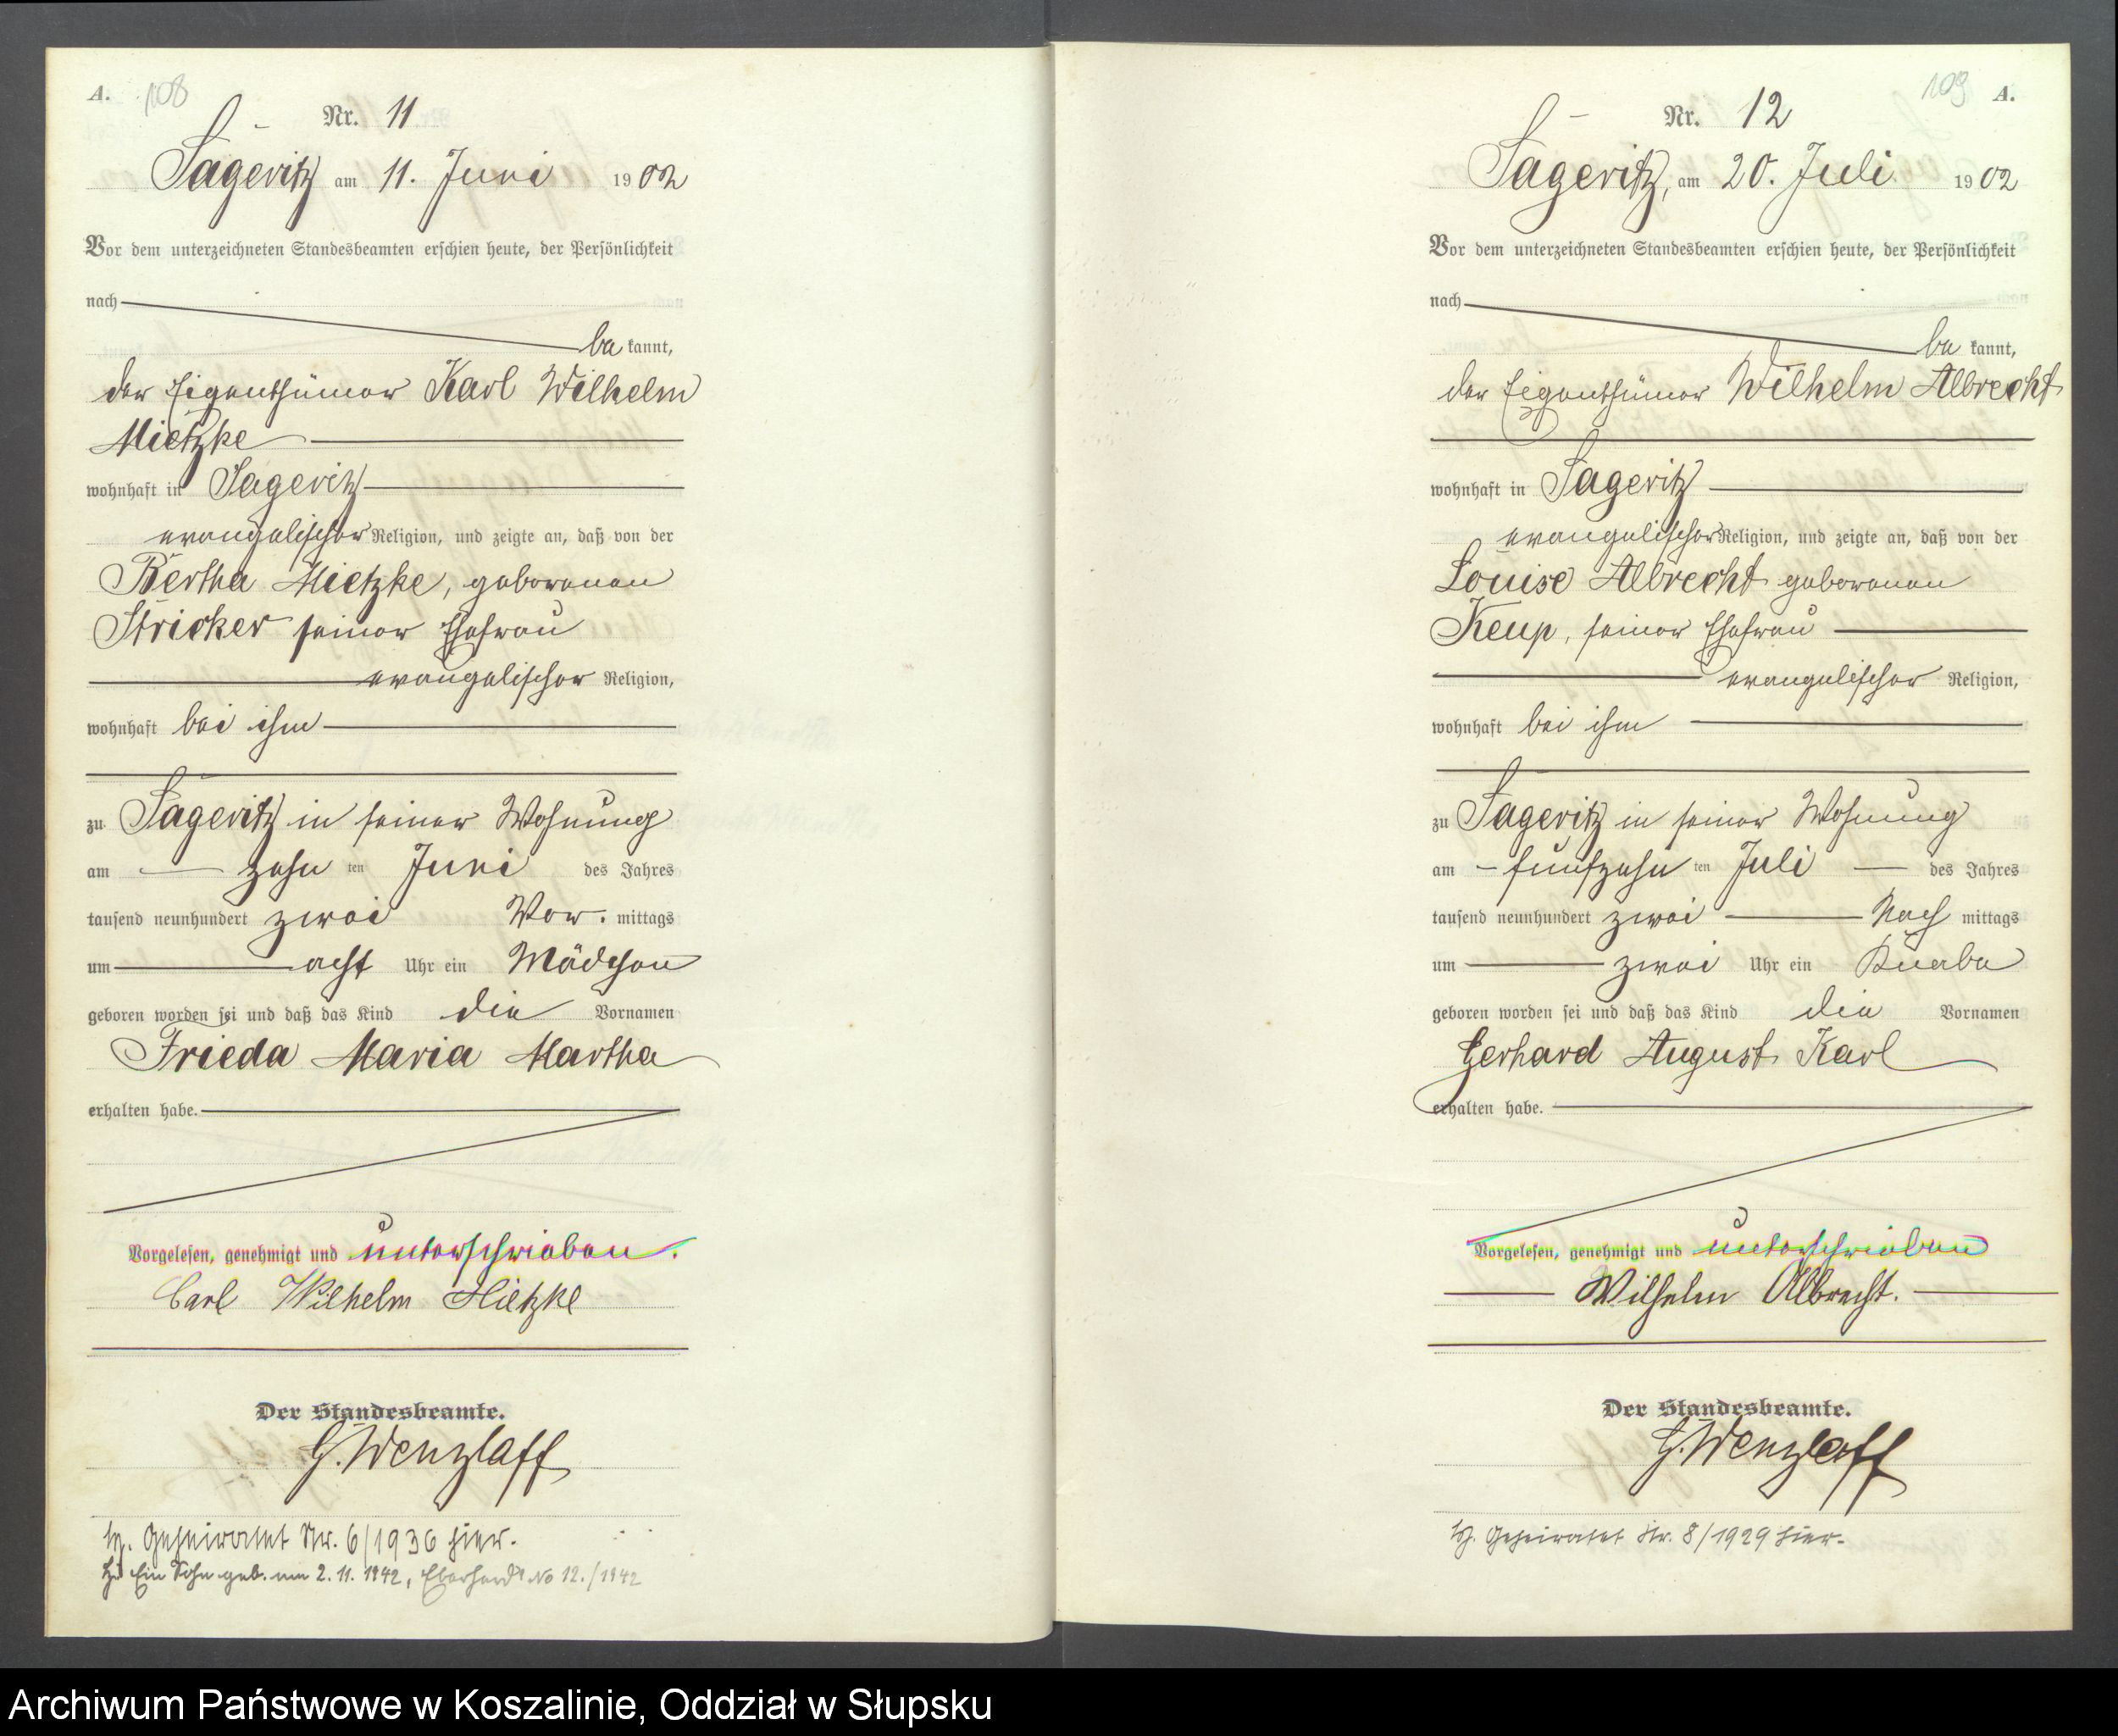 A. 108
Nr. 11
Sageritz am 11. Juni 1902
Vor dem unterzeichneten Standesbeamten erschien heute, der Persönlichkeit
nach
be kannt,
der Eigenthümer Karl Wilhelm
Mietzke
wohnhaft in Sageritz
evangelischer Religion, und zeigte an, daß von der
Bertha Mietzke, geborenen
Stricker seiner Ehefrau
evangelischer Religion,
wohnhaft bei ihm
zu Sageritz in seiner Wohnung
am zehn ten Juni des Jahres
tausend neunhundert zwei Vor. mittags
um acht Uhr ein Mädchen
geboren worden sei und daß das Kind die Vornamen
Frieda Maria Martha
erhalten habe.
Vorgelesen, genehmigt und unterschrieben.
Carl Wilhelm Mietzke
Der Standesbeamte.
G. Wenzlaff
Geheiratet Nr. 6/1936 hier.
Ein Sohn geb. am 2. 11. 1942, Eberhard No 12./1942
109 A.
Nr. 12
Sageritz, am 20. Juli 1902
Vor dem unterzeichneten Standesbeamten erschien heute, der Persönlichkeit
nach
be kannt,
der Eigenthümer Wilhelm Albrecht
wohnhaft in Sageritz
evangelischer Religion, und zeigte an, daß von der
Louise Albrecht geborenen
Keup, seiner Ehefrau
evangelischer Religion,
wohnhaft bei ihm
zu Sageritz in seiner Wohnung
am fünfzehn ten Juli des Jahres
tausend neunhundert zwei Nach mittags
um zwei Uhr ein Knabe
geboren worden sei und daß das Kind die Vornamen
Gerhard August Karl
erhalten habe.
Vorgelesen, genehmigt und unterschrieben
Wilhelm Albrecht.
Der Standesbeamte.
G. Wenzlaff
Geheiratet Nr. 8/1929 hier.
Archiwum Państwowe w Koszalinie, Oddział w Słupsku